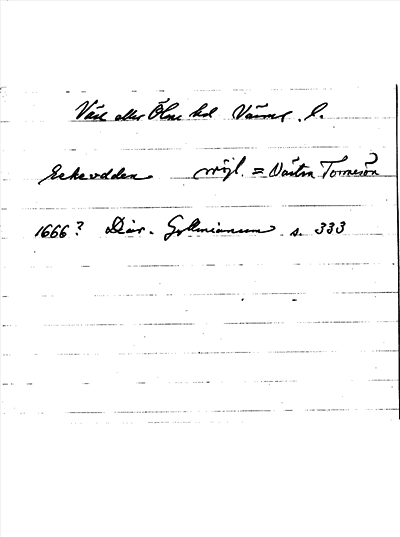 Väse eller Ölme hd Värml. l.
Eskeudden möjl. = Västra Torrerön
1666? Diar. Gyllenianum s. 333